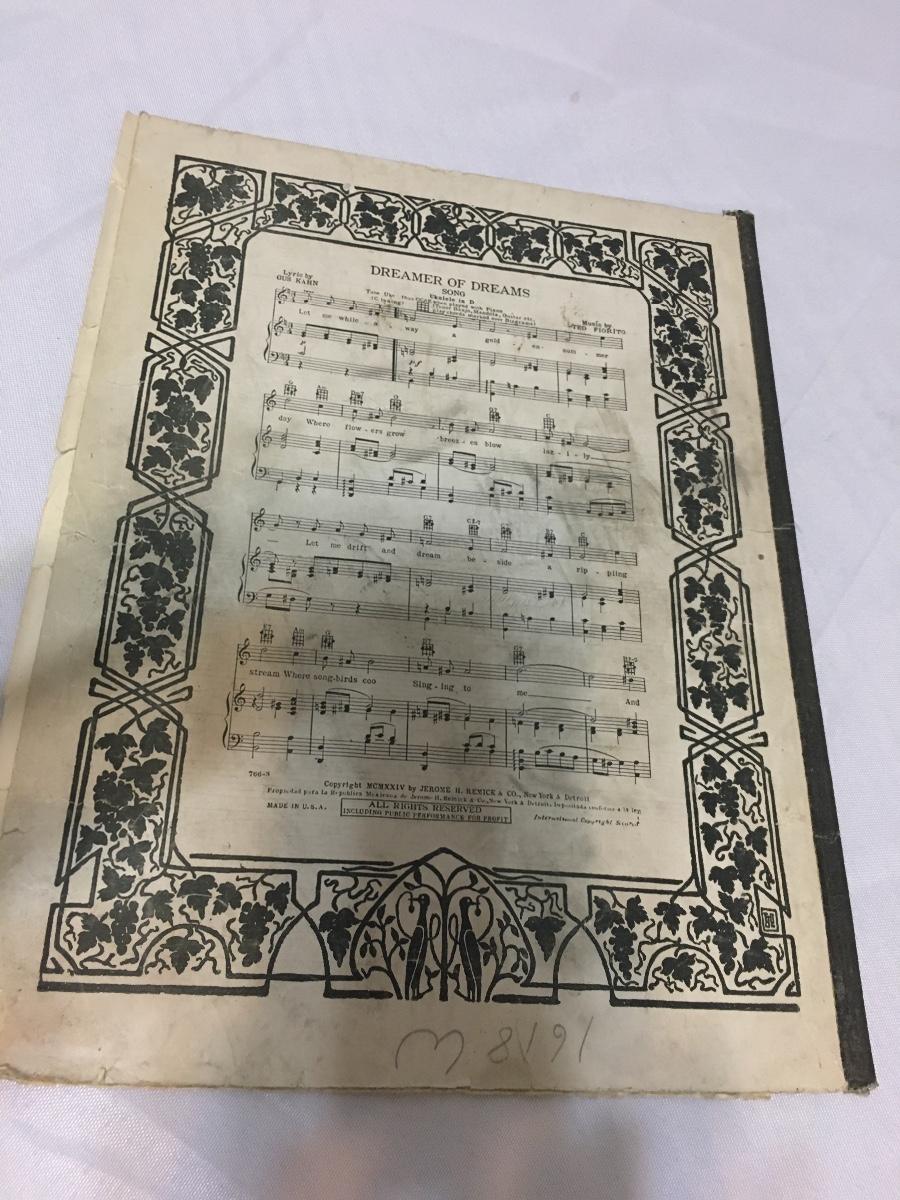 DREAMER OF DREAMS
SONG
Lyric by
GUS KAHN
Ukulele in D
Tune Uke
when played with Piano
Music by
TED FIORITO
Let me while - a way a gold - en sum - mer
day Where flow - ers grow breez - es blow laz - i - ly
Let me drift and dream be - side a rip - pling
stream Where song-birds coo Sing - ing to me And
766-3
Copyright MCMXXIV by JEROME H. REMICK & CO., New York & Detroit
Propiedad para la Republica Mexicana de Jerome H. Remick & Co., New York & Detroit. Depositada conforme a la ley
MADE IN U.S.A.
ALL RIGHTS RESERVED
INCLUDING PUBLIC PERFORMANCE FOR PROFIT
International Copyright Secured